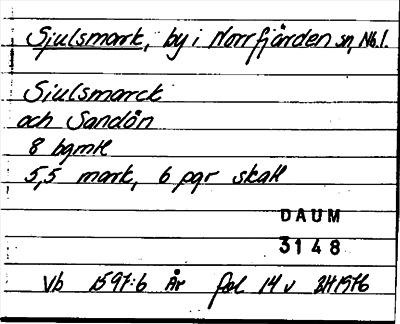 Sjulsmark, by i Norrfjärden sn, Nb.l.
Siulsmarck
och Sandön
8 bgmtl
5,5 mark, 6 pgr skatt
DAUM
3148
Vb 1597:6 År fol 14 v 2H1976